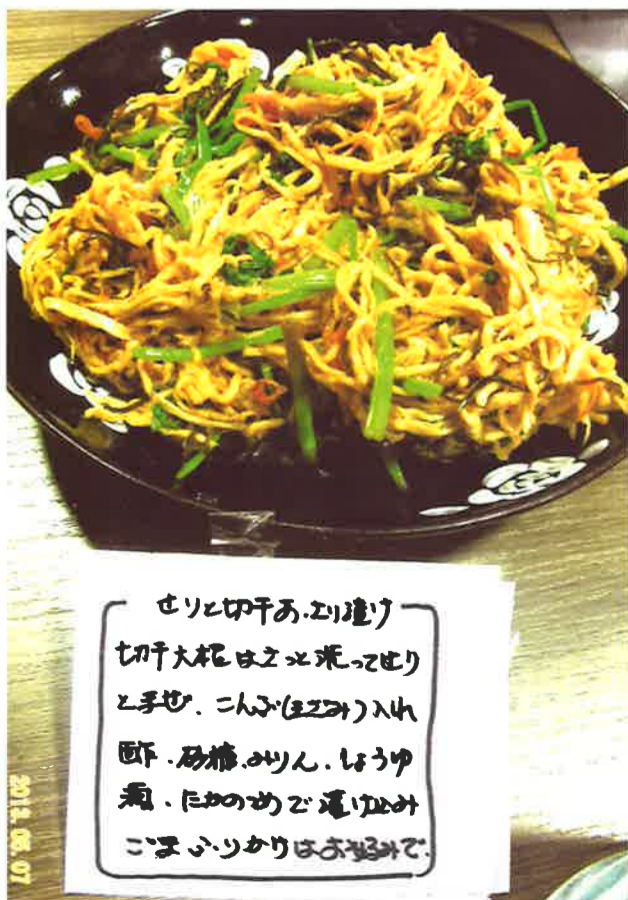 せりと切干あっさり漬け
切干大根はさっと洗ってせり
と手ぜ、こんぶ(きざみ)入れ
酢、砂糖、みりん、しょうゆ
酒、たかのつめで漬け込み
ごまふりかけはお好みで。
2012.05.07